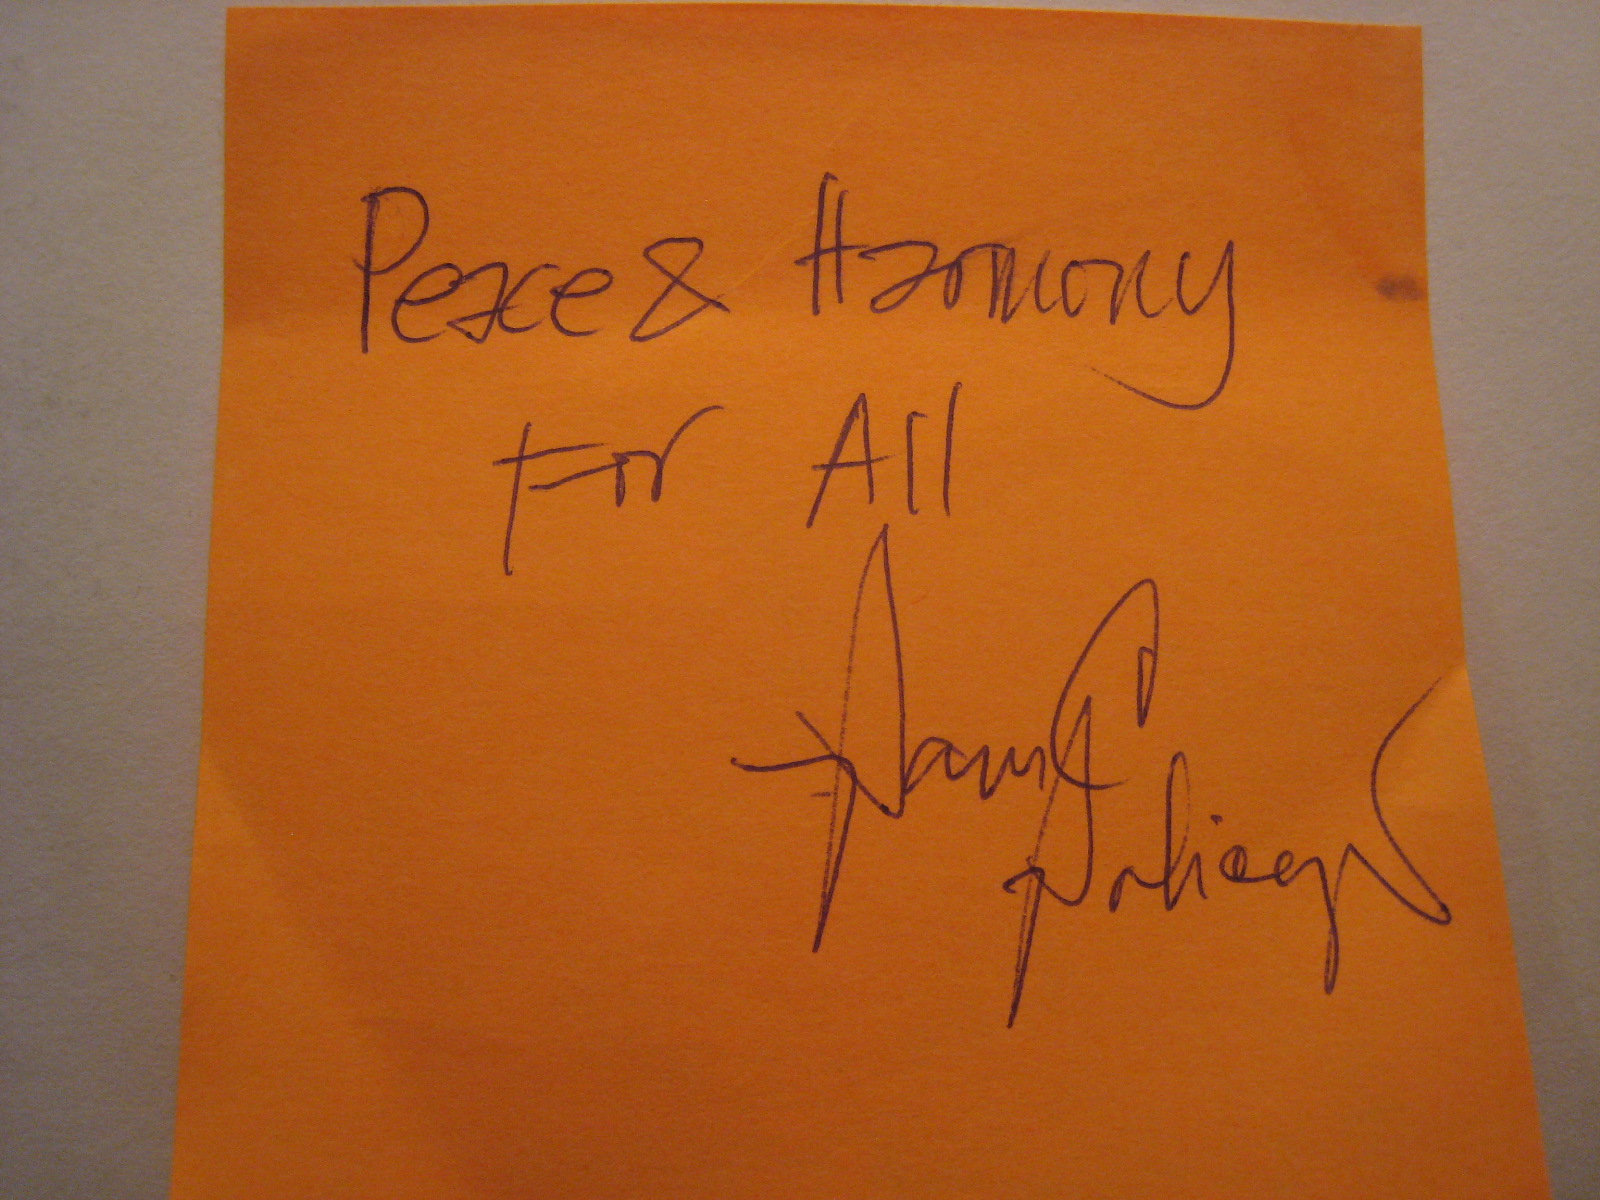 Peace & Harmony
For All